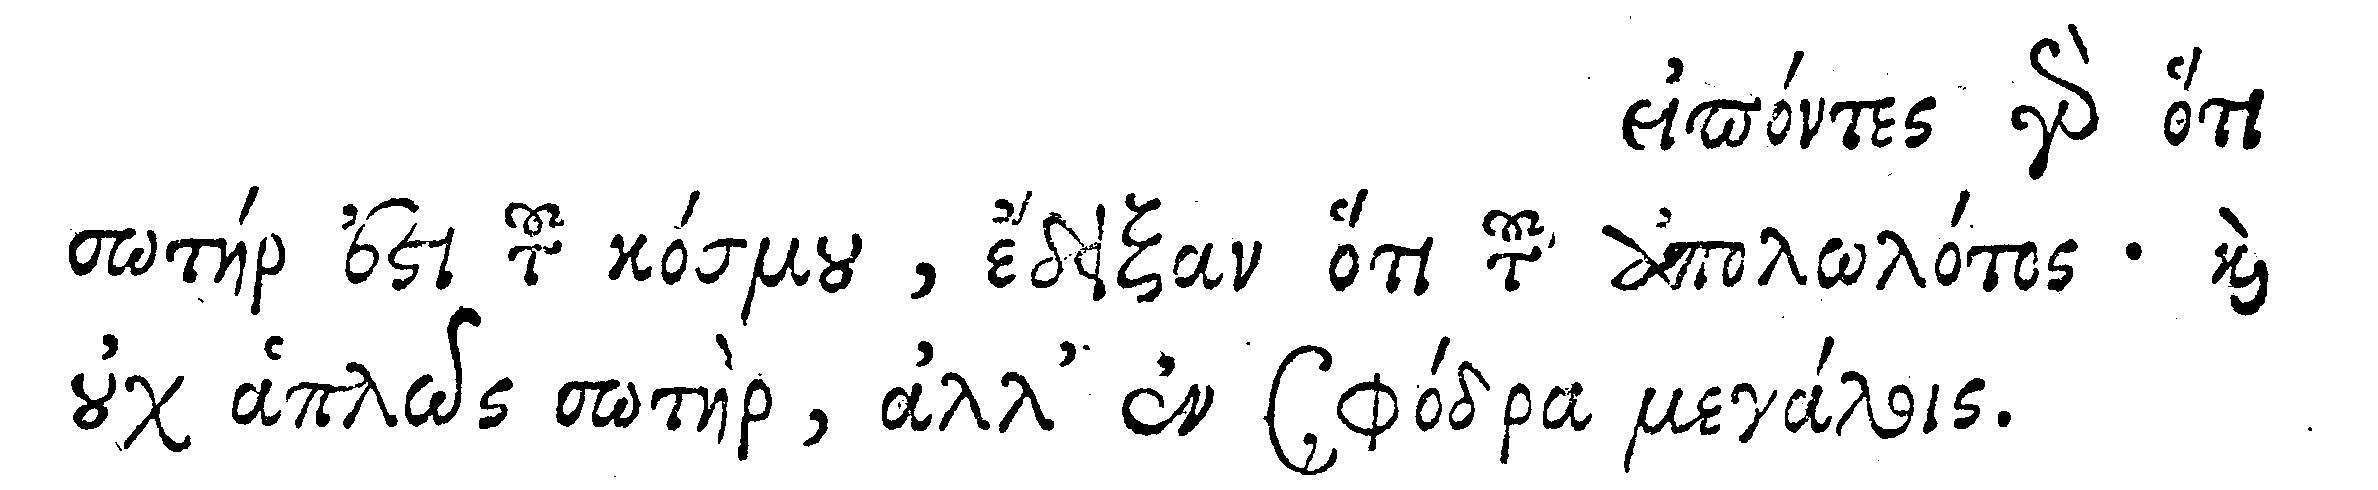 εἰπόντες γὰρ ὅτι
σωτήρ ἐστι τοῦ κόσμου, ἔδειξαν ὅτι τοῦ ἀπολωλότος· καὶ
οὐχ ἁπλῶς σωτὴρ, ἀλλ' ἐν σφόδρα μεγάλοις.